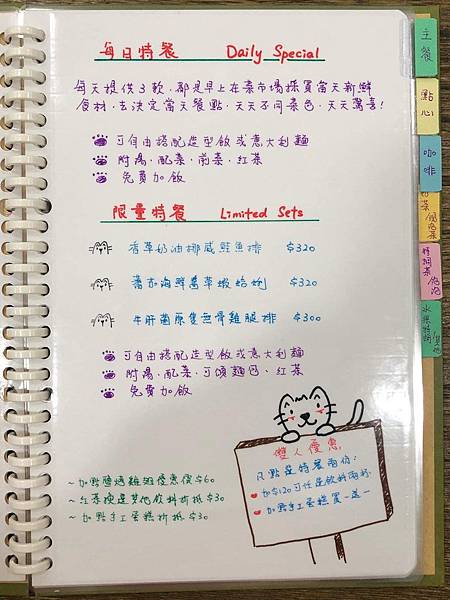 每日特餐 Daily Special
每天提供3款,都是早上在菜市場採買當天新鮮
食材,去決定當天餐點,天天不同菜色,天天驚喜!
可自由搭配造型飯或意大利麵
附湯、配菜、前菜、紅茶
免費加飯
限量特餐 Limited Sets
香草奶油挪威鮭魚排 $320
海鮮 草蝦 $320
牛肝菌原隻無骨雞腿排 $300
可自由搭配造型飯或意大利麵
附湯、配菜、可頌麵包、紅茶
免費加飯
雙人優惠
凡點是特餐兩份:
加$120可任選飲料兩杯
加點手工蛋糕買一送一
~加點鹽烤雞翅優惠價$60
~紅茶換其他飲料折抵$30
~加點手工蛋糕折抵$30
主餐
點心
咖啡
奶茶
水果特調